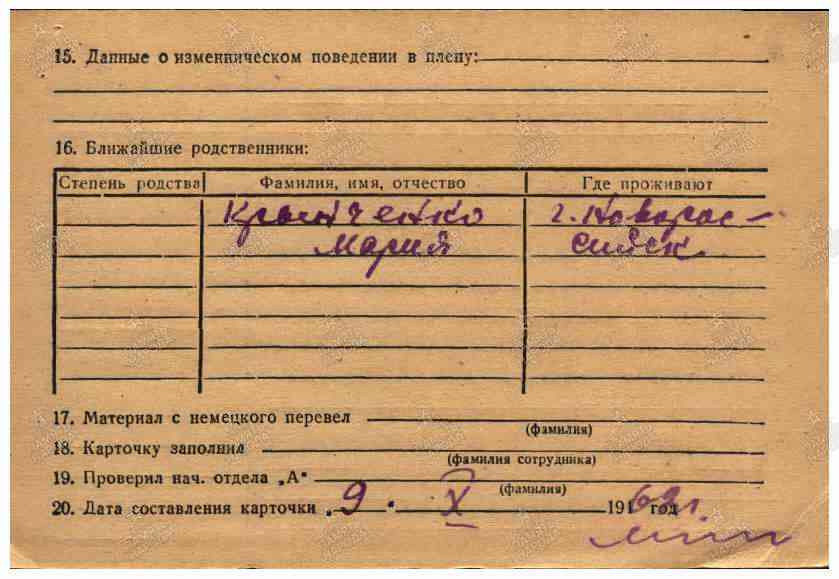 15. Данные о изменническом поведении в плену:
16. Ближайшие родственники:
Степень родства Фамилия, имя, отчество Где проживают
г. Новорос-
Мария сийск
17. Материал с немецкого перевел
(фамилия)
18. Карточку заполнил
(фамилия сотрудника)
19. Проверил нач. отдела „А"
(фамилия)
20. Дата составления карточки „9. X 1969 г. год